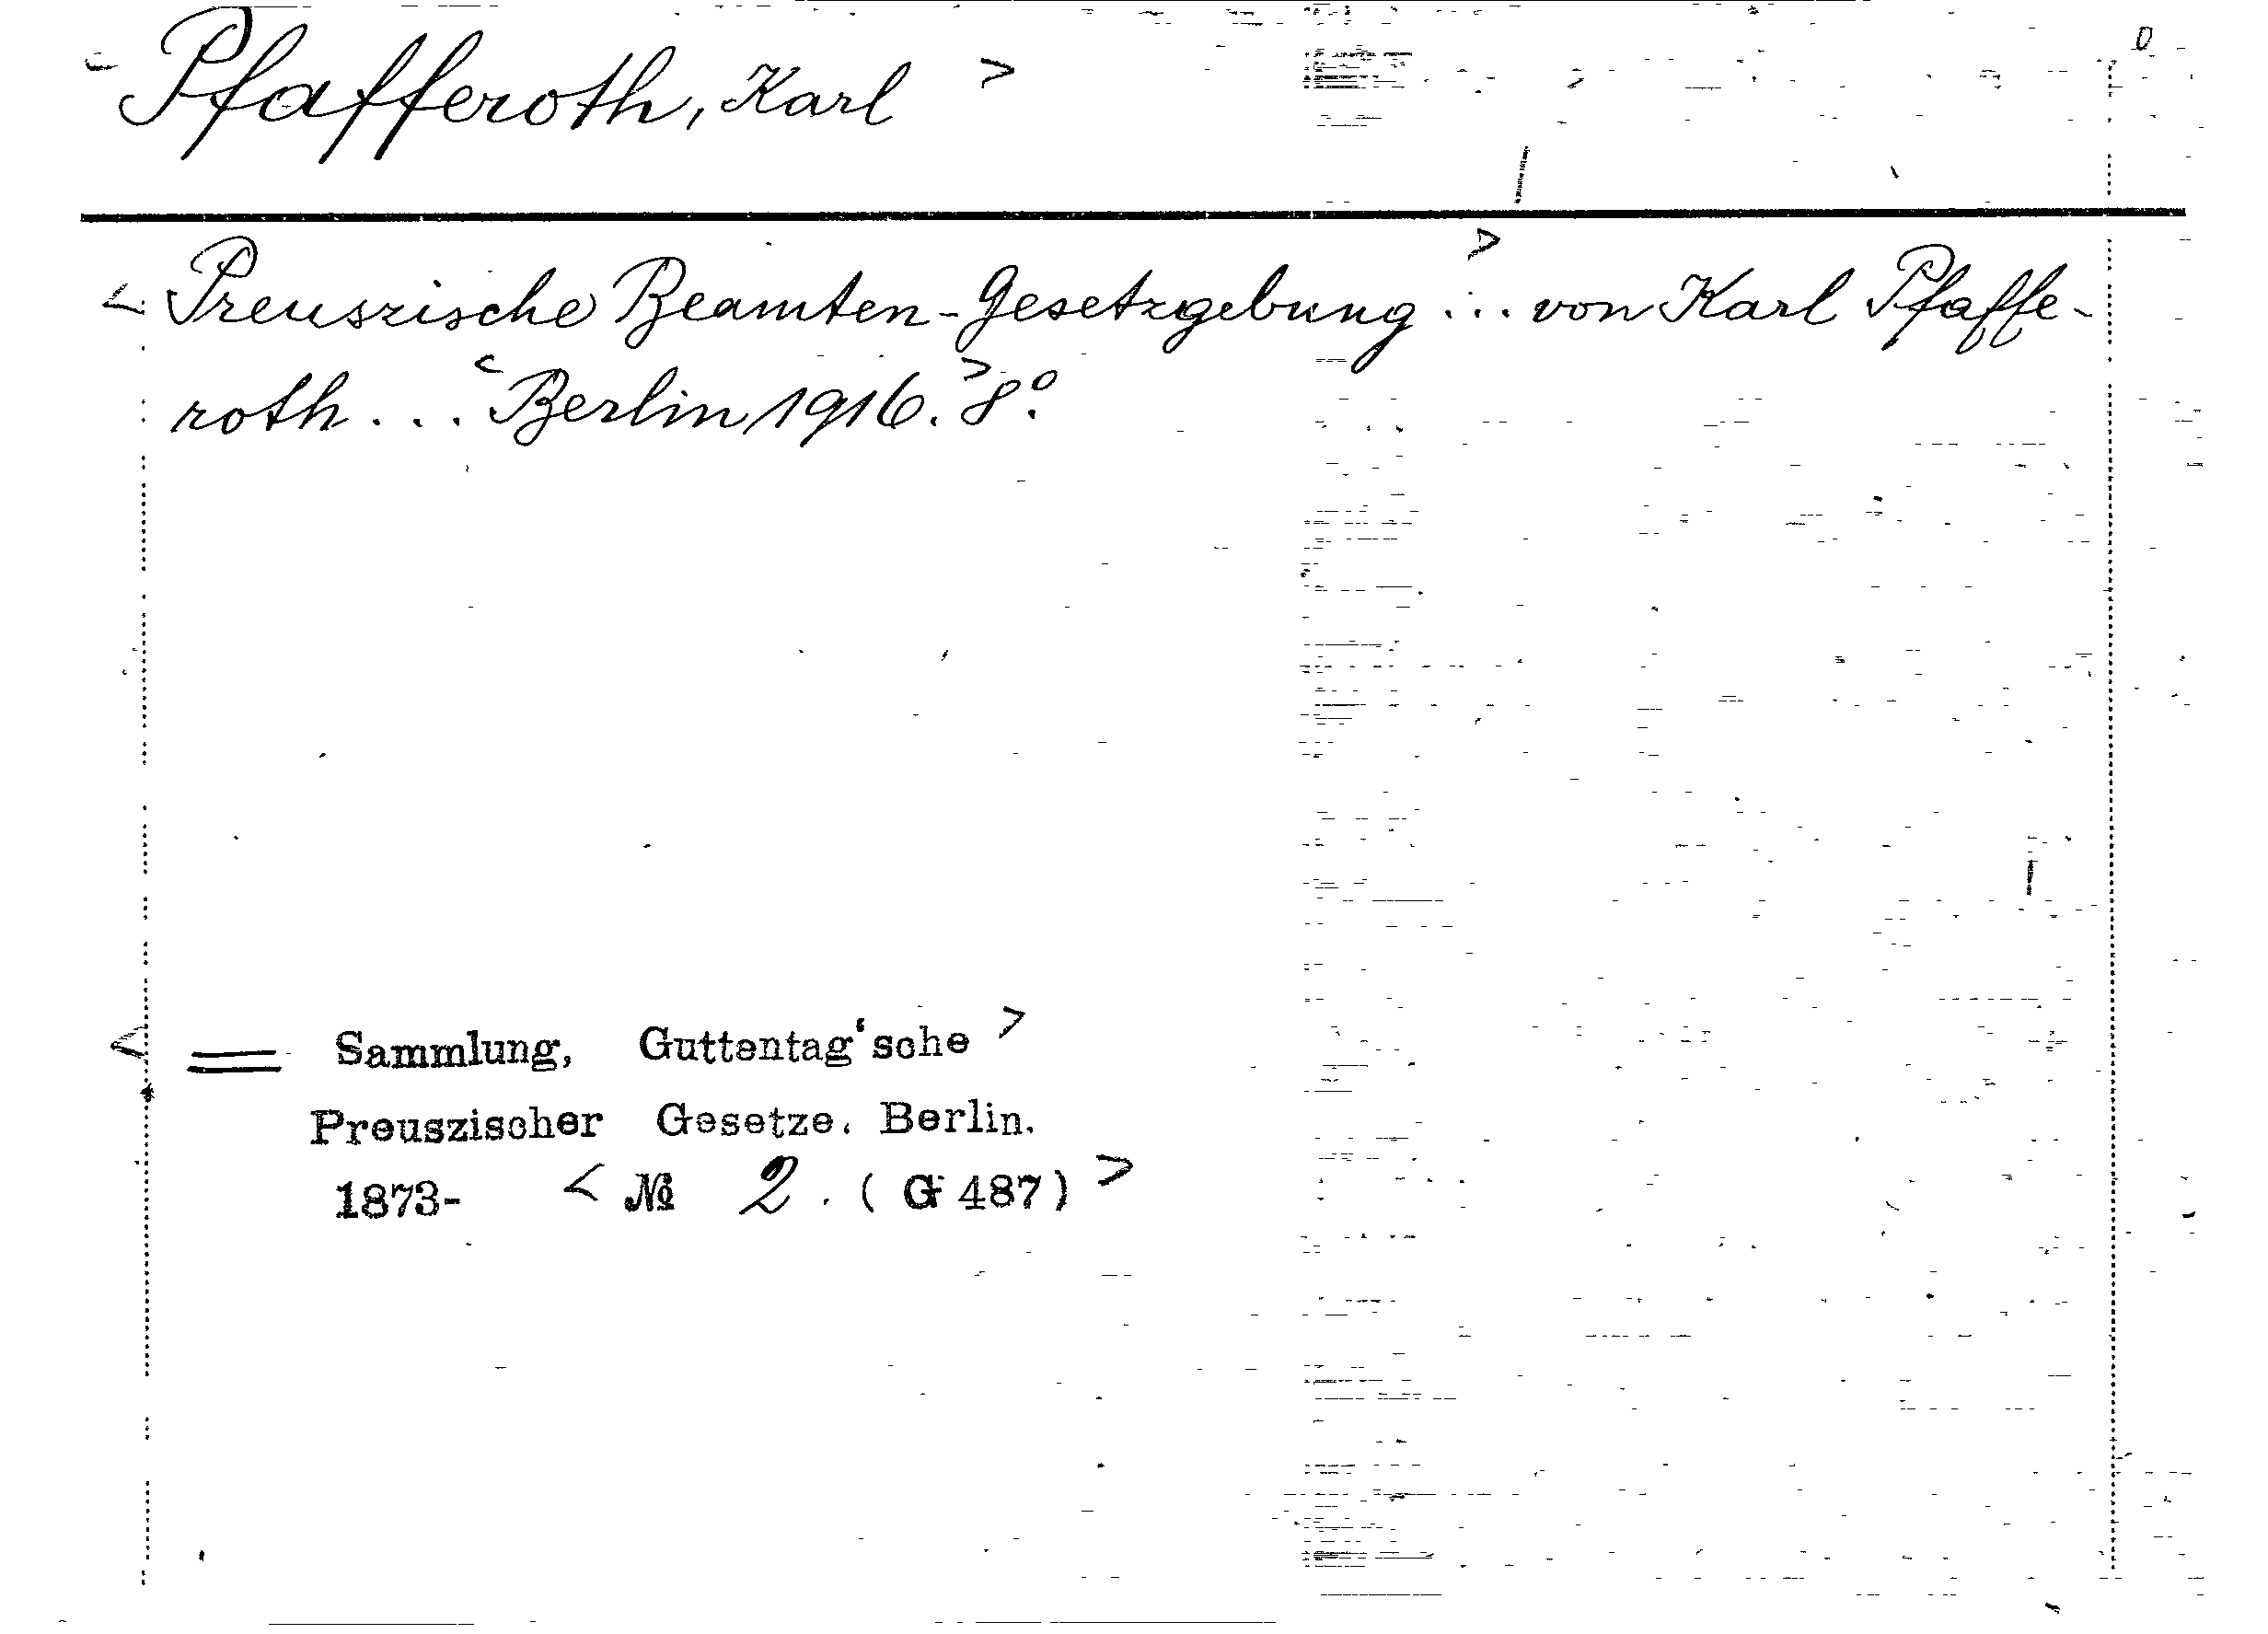 < Pfafferoth, Karl >
< Preuszische Beamten-Gesetzgebung > ... von Karl Pfaffe-
roth ... < Berlin 1916. > 8°.
< = Sammlung, Guttentag'sche >
Preuszischer Gesetze. Berlin.
1873- < № 2. (G 487) >